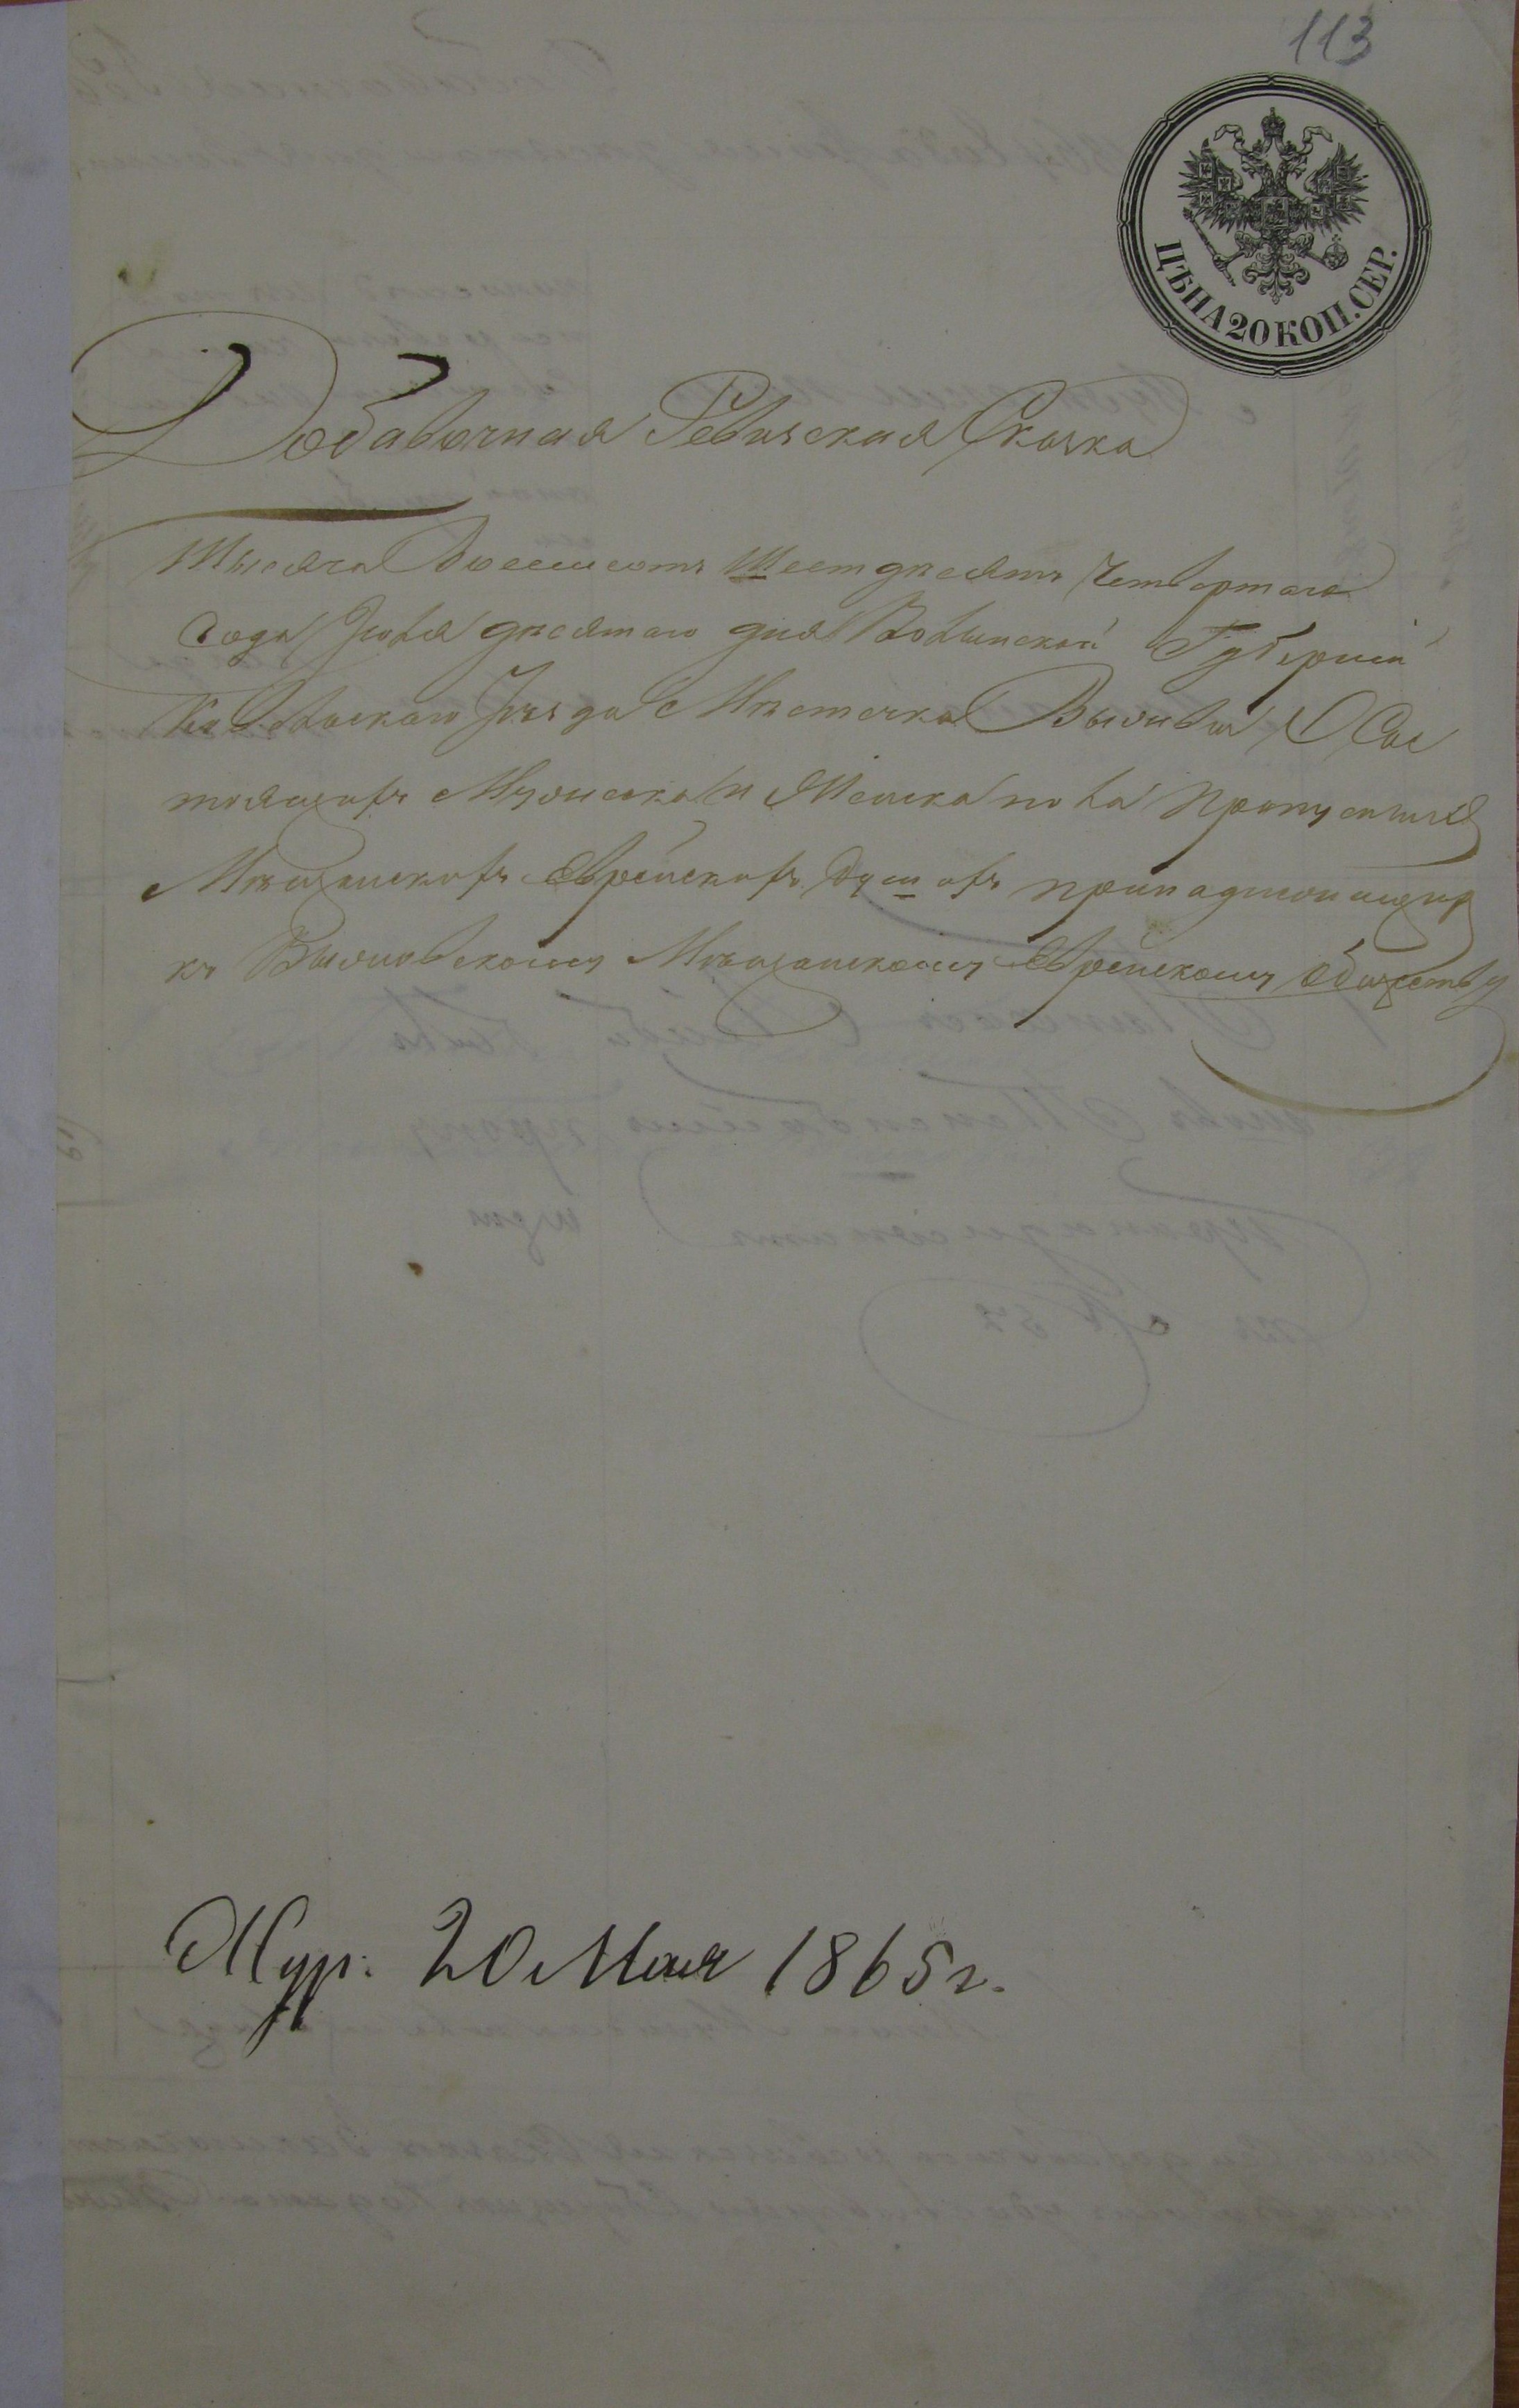 113
ЦѢНА 20 КОП. СЕР.
Добавочная Ревизская Сказка
Тысяча Восемсотъ Шестдесятъ Четвертаго
Года Іюля десятаго дня Волынской Губерніи
Ковельскаго Уѣзда Мѣстечка Выжвы О Сос
тоящихъ Мужеска и Женска пола
Мѣщанскихъ Еврейскихъ Душахъ принадлежащих
къ Выжовскому Мѣщанскому Еврейскому Обществу
Жур. 20 Мая 1865 г.